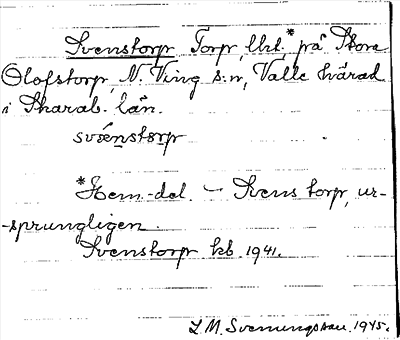 Svenstorp Torp, lht,* på Stora
Olofstorp N. Ving s:n, Valle härad
i Skarab. län.
svɛ́nstɔrp
*Hem.-del. – Svens torp, ur-
-sprungligen.
Svenstorp kb. 1941.
L M. Svenungsson. 1945.